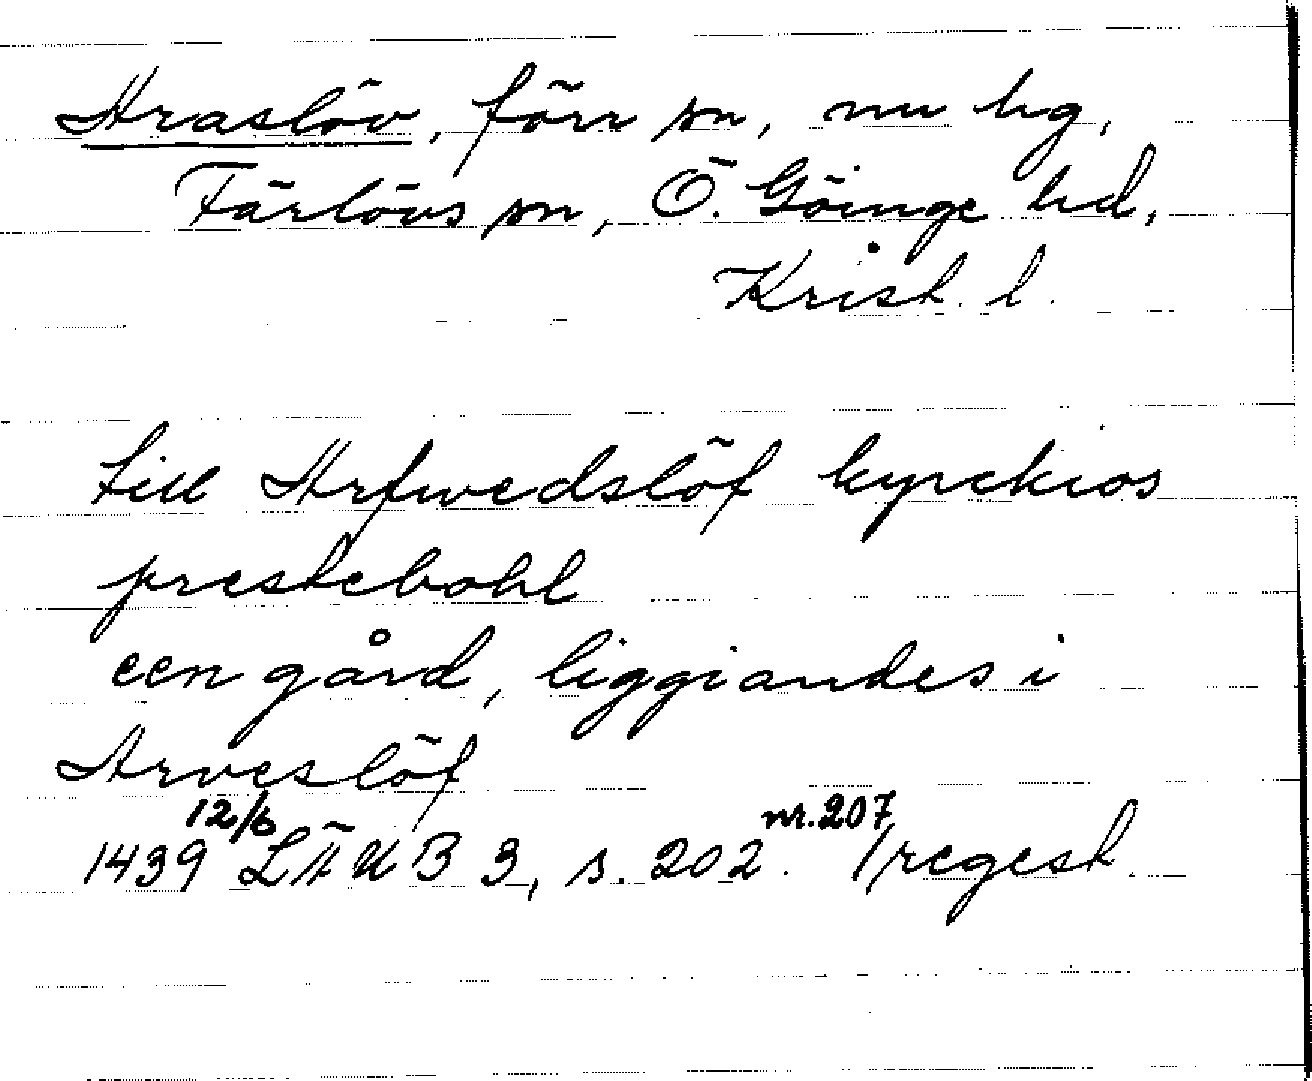 Araslöv, förr sn, nu hg,
Färlövs sn, Ö. Göinge hd,
Krist. l.
till Arfwedslöf kyrckios
prestebohl
een gård, liggiandes i
Arveslöf
12/6 nr. 207
1439 LÄUB 3, s. 202. /regest